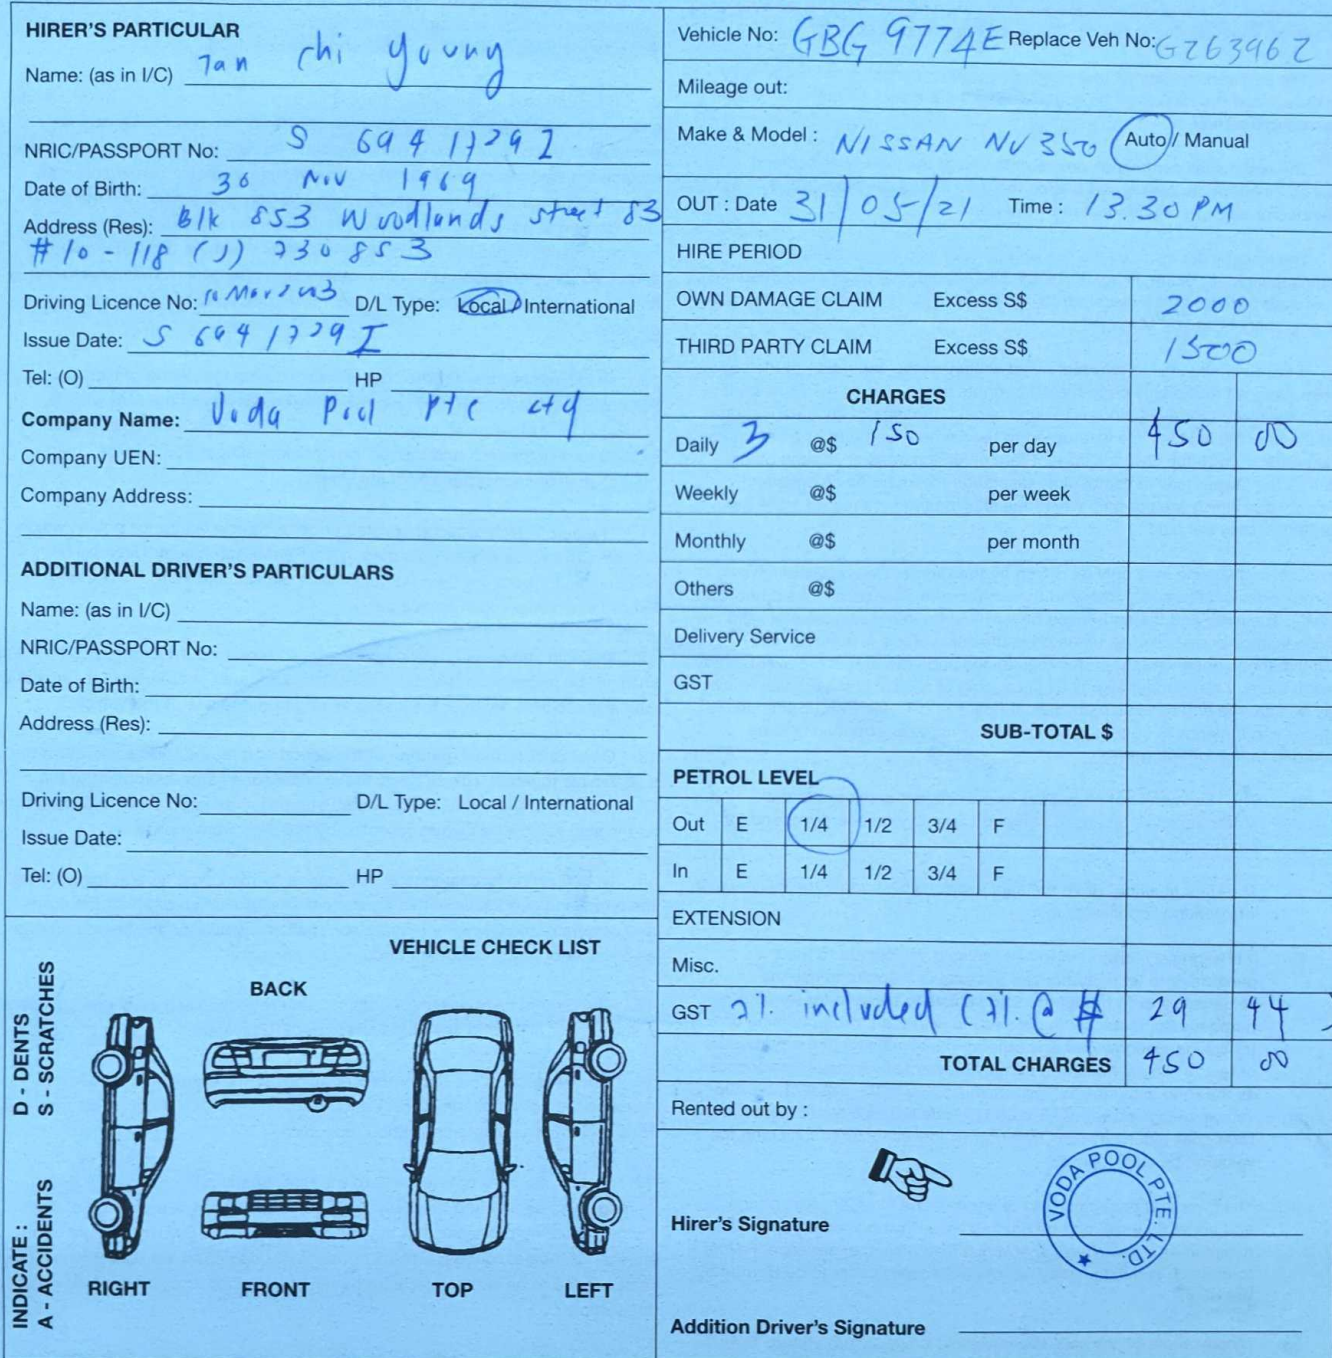 HIRER'S PARTICULAR
Name: (as in I/C) Tan chi young
NRIC/PASSPORT No: S 6941729I
Date of Birth: 30 Nov 1969
Address (Res): Blk 853 Woodlands street 83
#10-118 (S) 730853
Driving Licence No: 10 Mar 2003 D/L Type: Local / International
Issue Date: S 6941729I
Tel: (O) HP
Company Name: Voda Pool Pte Ltd
Company UEN:
Company Address:
ADDITIONAL DRIVER'S PARTICULARS
Name: (as in I/C)
NRIC/PASSPORT No:
Date of Birth:
Address (Res):
Driving Licence No: D/L Type: Local / International
Issue Date:
Tel: (O) HP
VEHICLE CHECK LIST
BACK
RIGHT FRONT TOP LEFT
INDICATE : D - DENTS
A - ACCIDENTS S - SCRATCHES
Vehicle No: GBG 9774E Replace Veh No: GZ6396Z
Mileage out:
Make & Model : NISSAN NV350 Auto / Manual
OUT : Date 31/05/21 Time : 13.30 PM
HIRE PERIOD
OWN DAMAGE CLAIM Excess S$ 2000
THIRD PARTY CLAIM Excess S$ 1500
CHARGES
Daily 3 @$ 150 per day 450 00
Weekly @$ per week
Monthly @$ per month
Others @$
Delivery Service
GST
SUB-TOTAL $
PETROL LEVEL
Out E 1/4 1/2 3/4 F
In E 1/4 1/2 3/4 F
EXTENSION
Misc.
GST 7% included (7% @ $ 29 44 )
TOTAL CHARGES 450 00
Rented out by :
Hirer's Signature
VODA POOL PTE. LTD.
Addition Driver's Signature